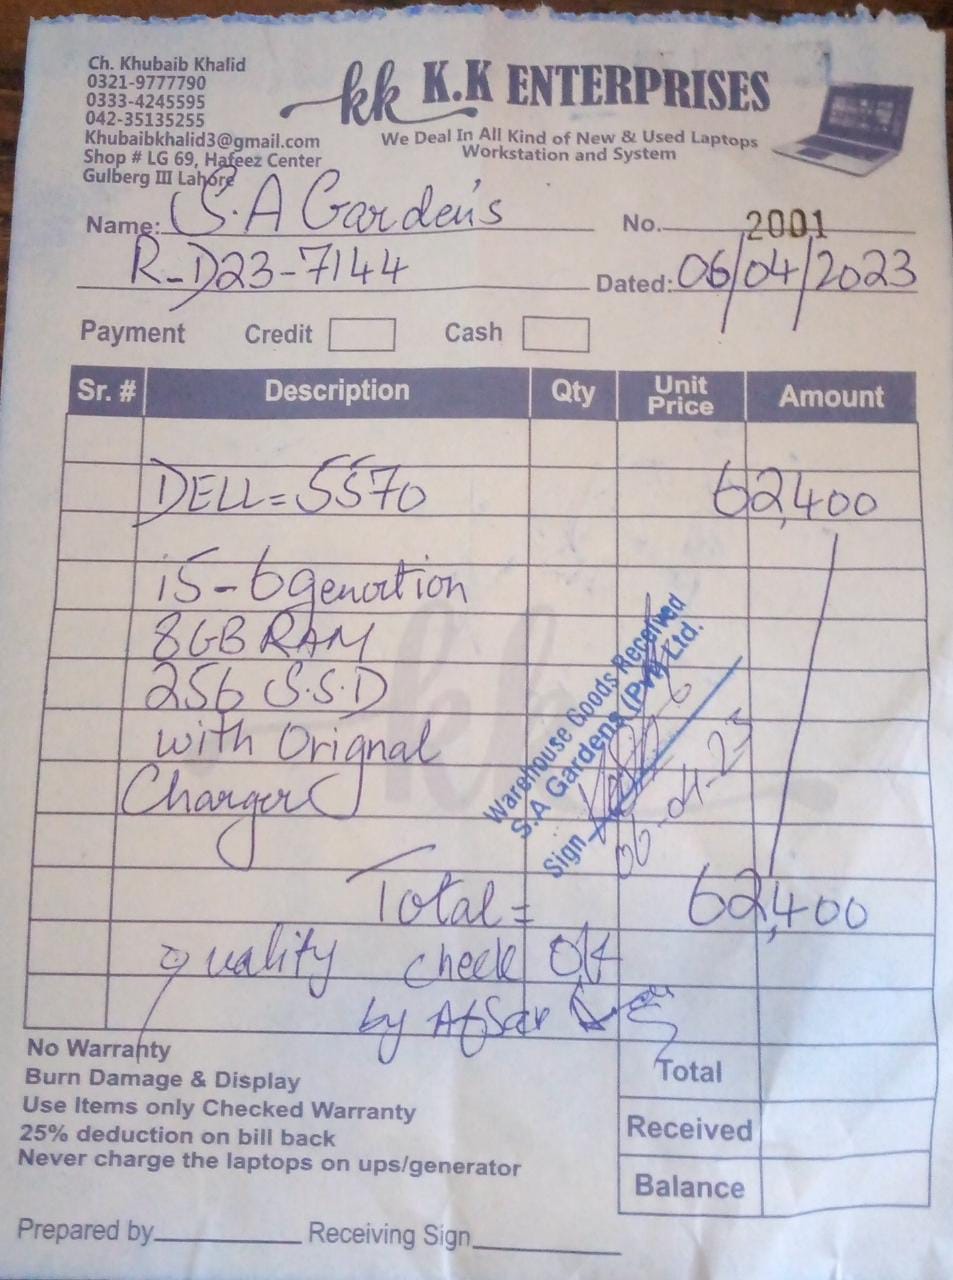 Ch. Khubaib Khalid
0321-9777790
0333-4245595
042-35135255
Khubaibkhalid3@gmail.com
Shop # LG 69, Hafeez Center
Gulberg III Lahore
kk K.K ENTERPRISES
We Deal In All Kind of New & Used Laptops
Workstation and System
Name: S.A Garden's
No. 2001
R-D23-7144
Dated: 06/04/2023
Payment Credit Cash
Sr. # Description Qty Unit Price Amount
DELL = 5570 62,400
i5-6genortion
8GB RAM
256 S.S.D
with Orignal
Charger
Warehouse Goods Received
S.A Gardens (Pvt) Ltd.
Sign
06-04-23
Total = 62,400
quality check OK
by Afsar
No Warranty
Burn Damage & Display
Use Items only Checked Warranty
25% deduction on bill back
Never charge the laptops on ups/generator
Total
Received
Balance
Prepared by Receiving Sign